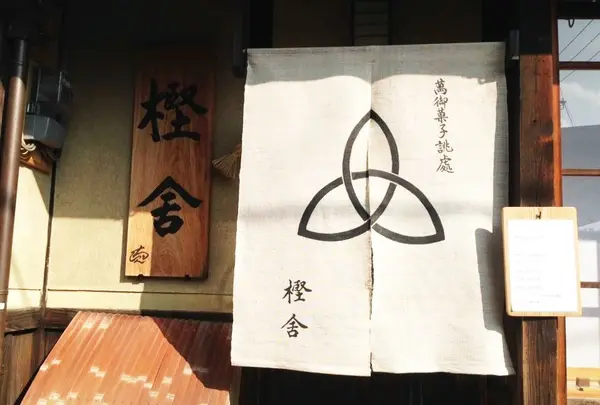 樫舍
萬御菓子誂處
樫舍